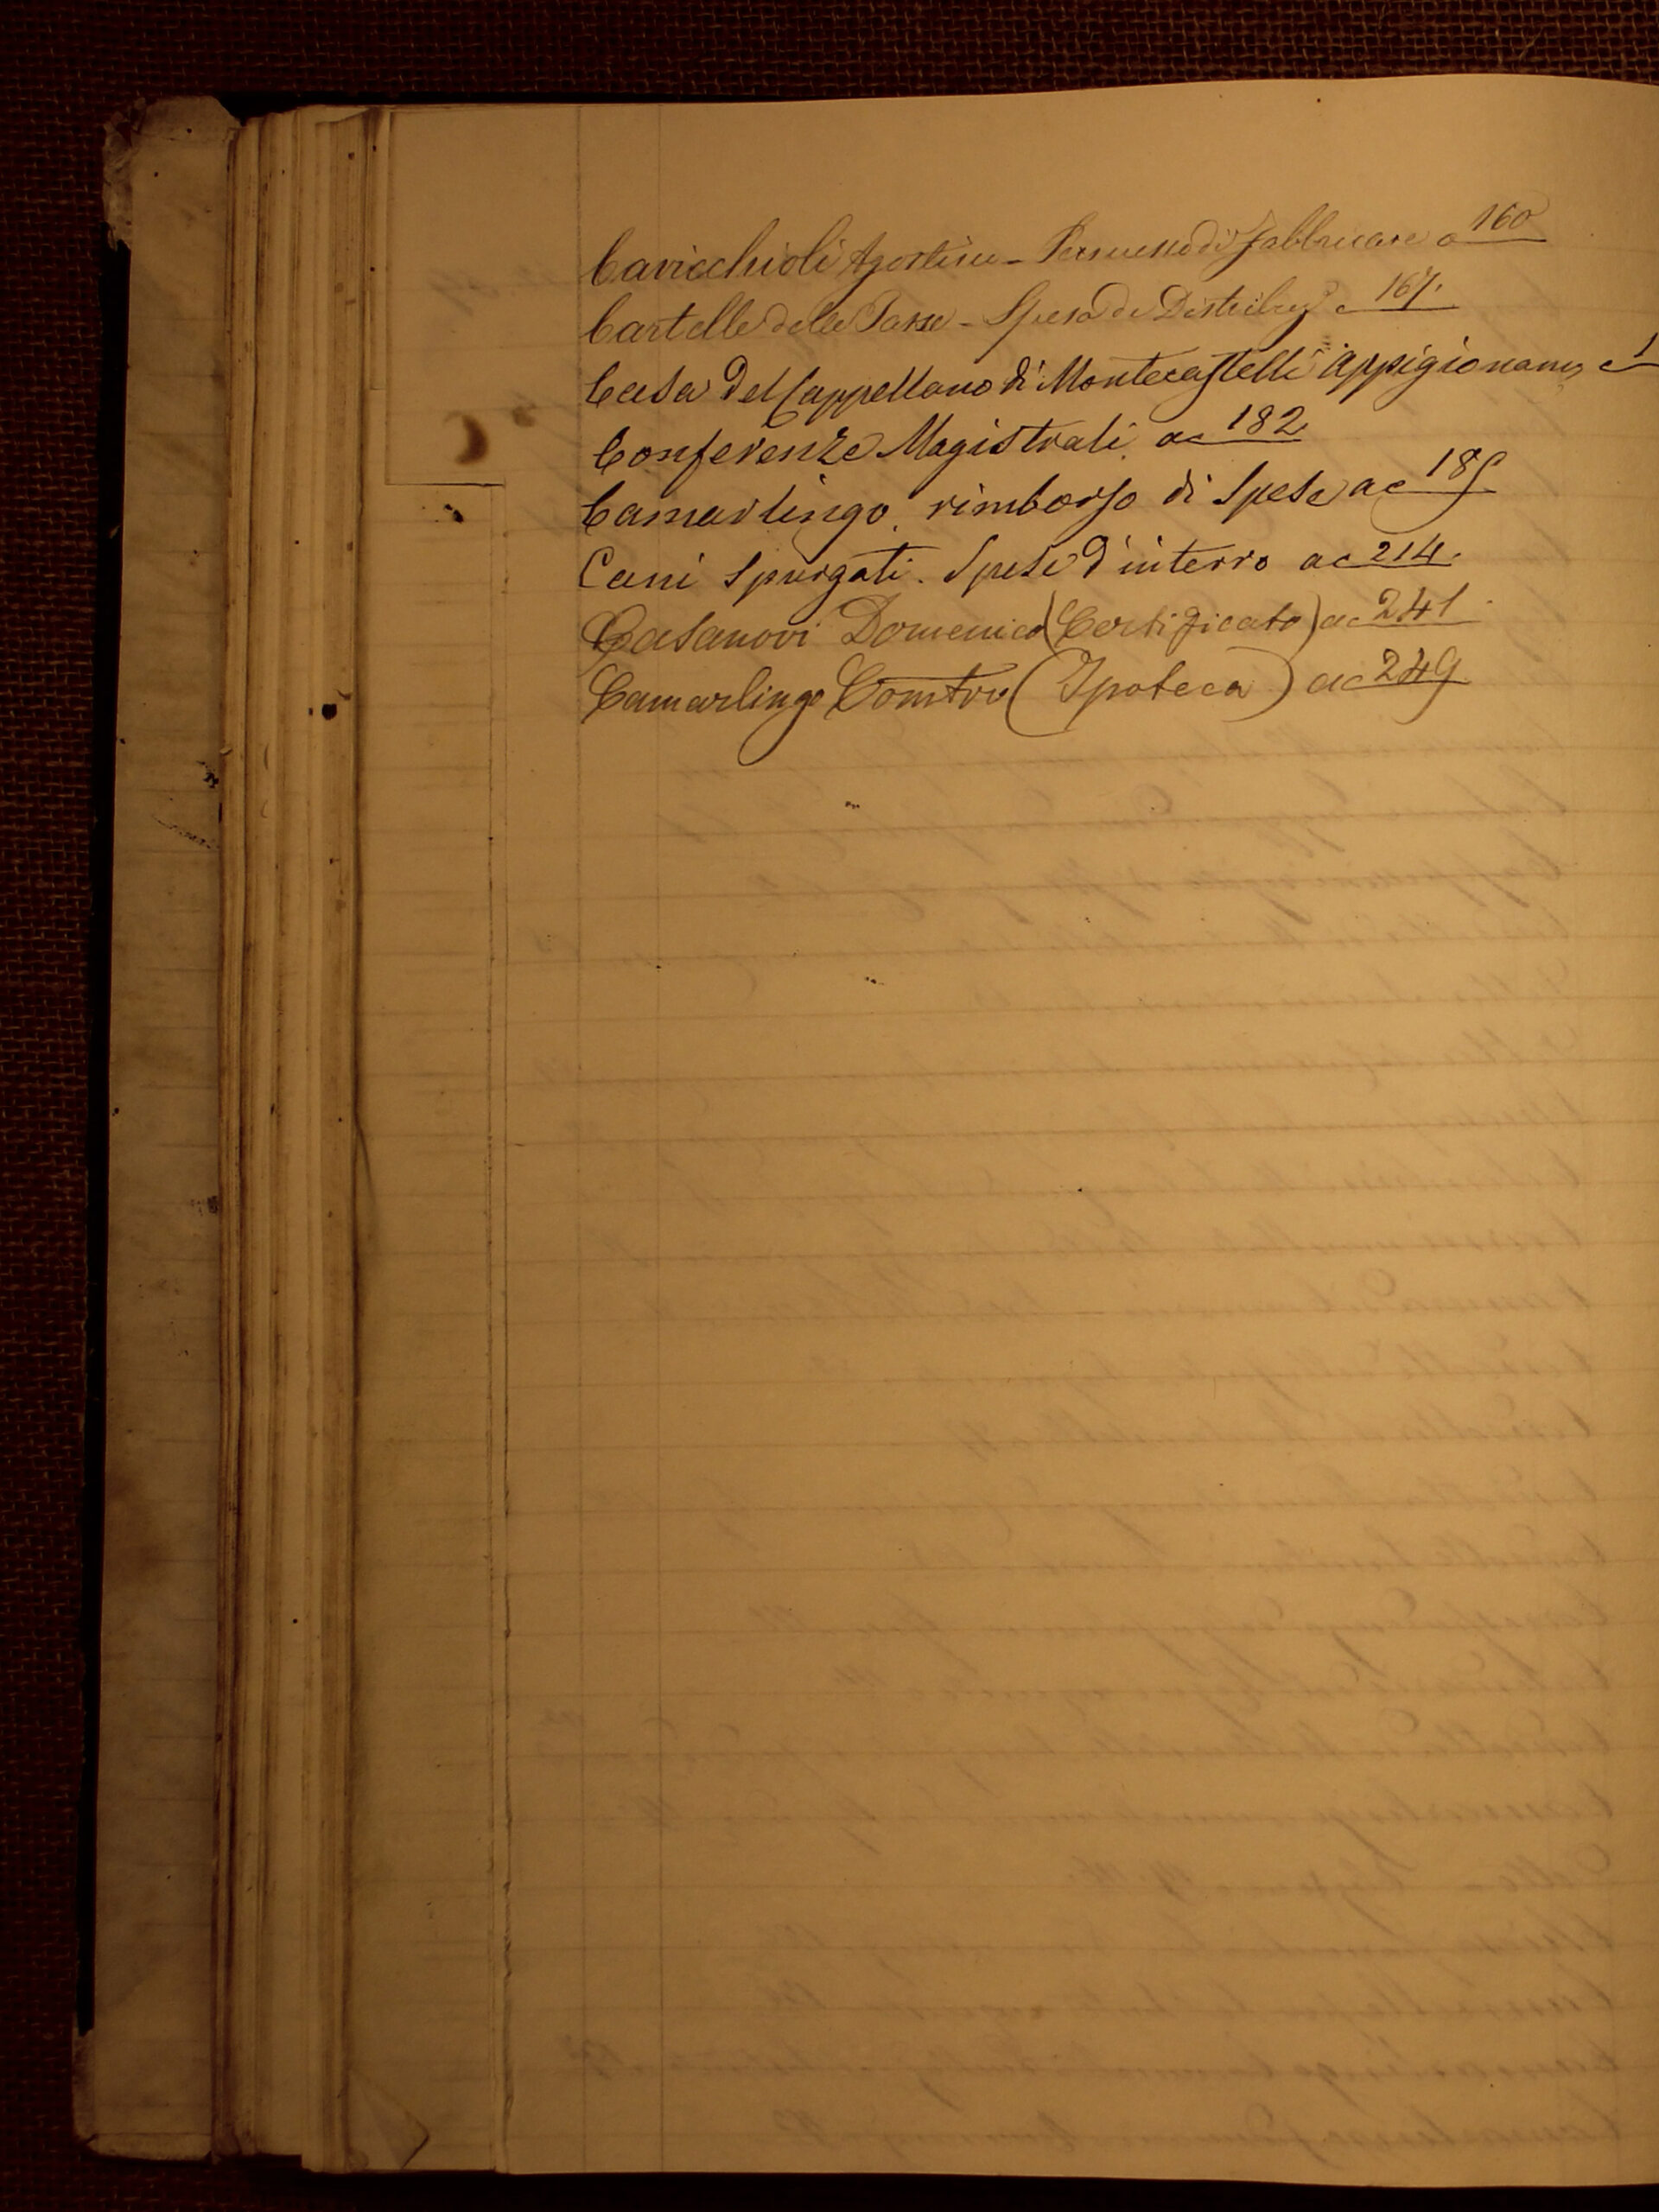 Cavicchioli Agostino - Permesso di fabbricare a 160
Cartelle delle Tasse - Spesa di Distribuze a 167.
Casa del Cappellano di Montecastelli appigionamo a c 1
Conferenze Magistrali. ac 182
Camarlingo. rimborso di Spese ac 185
Cani Spurgati. Spese d'interro ac 214.
Casanovi Domenico (Certificato) ac 241.
Camarlingo Comtvo (Ipoteca) ac 249